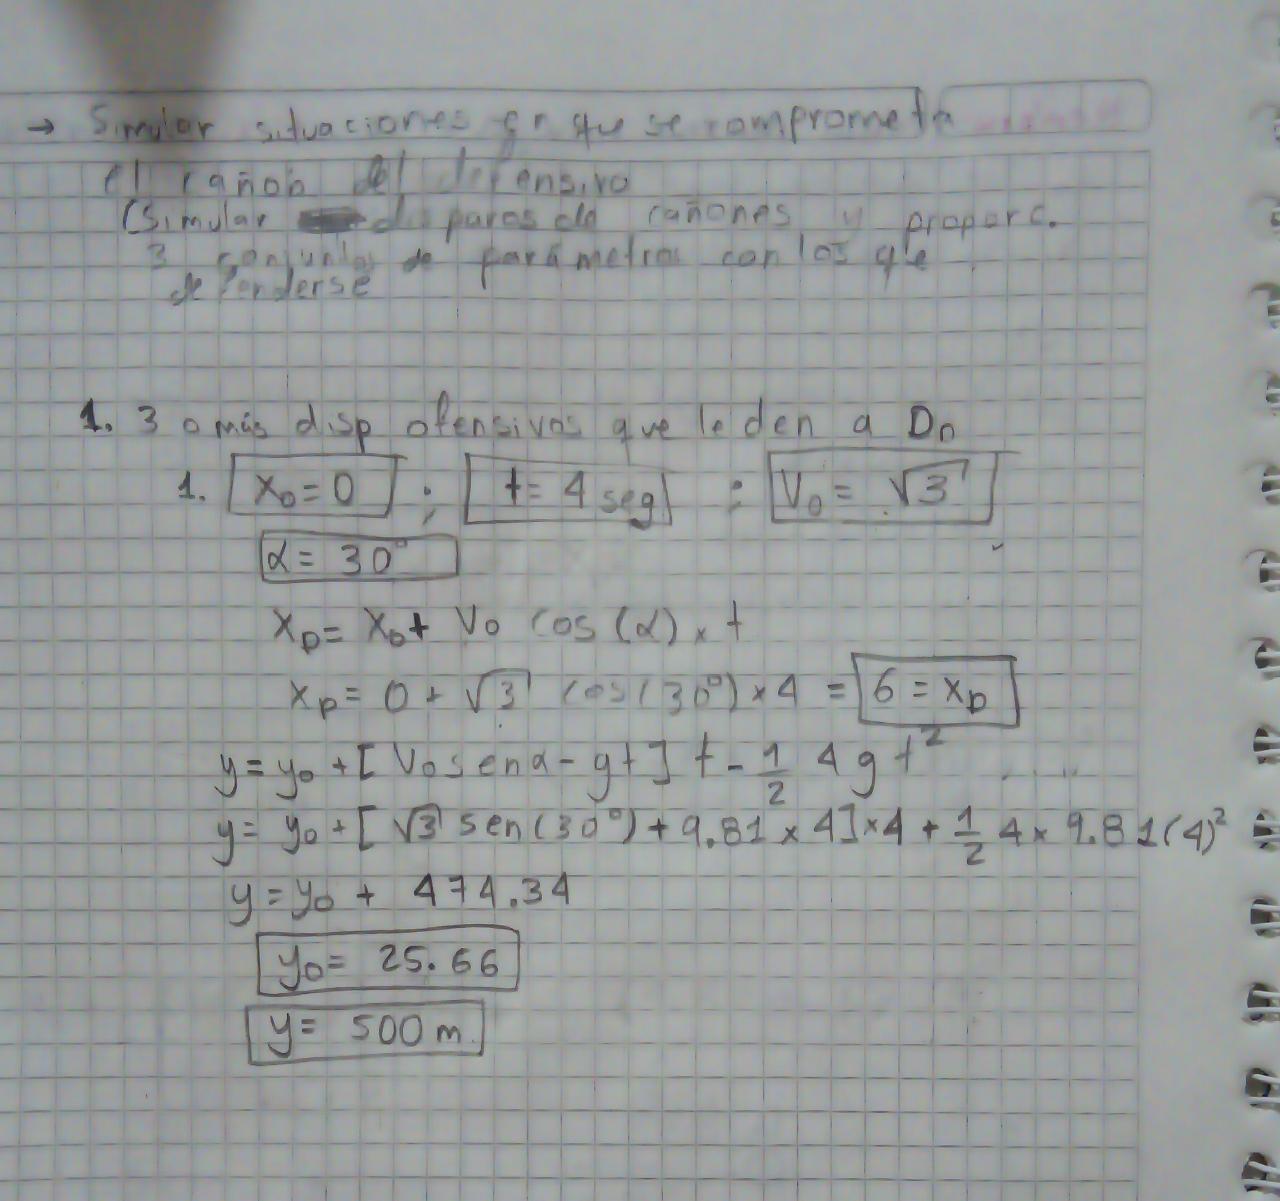 → Simular situaciones en que se comprometa
el cañon del defensivo
(Simular disparos de cañones y proporc.
3 conjuntos de parámetros con los que
defenderse
1. 3 o más disp ofensivos que le den a D₀
1. x₀ = 0 ; t = 4 seg ; V₀ = √3
α = 30°
x_D = x₀ + V₀ cos (α) × t
x_D = 0 + √3 cos(30°) × 4 = 6 = x_D
y = y₀ + [V₀ sen α - gt] t - 1/2 4 g t²
y = y₀ + [√3 sen(30°) + 9.81 × 4] × 4 + 1/2 4 × 9.81(4)²
y = y₀ + 474.34
y₀ = 25.66
y = 500 m